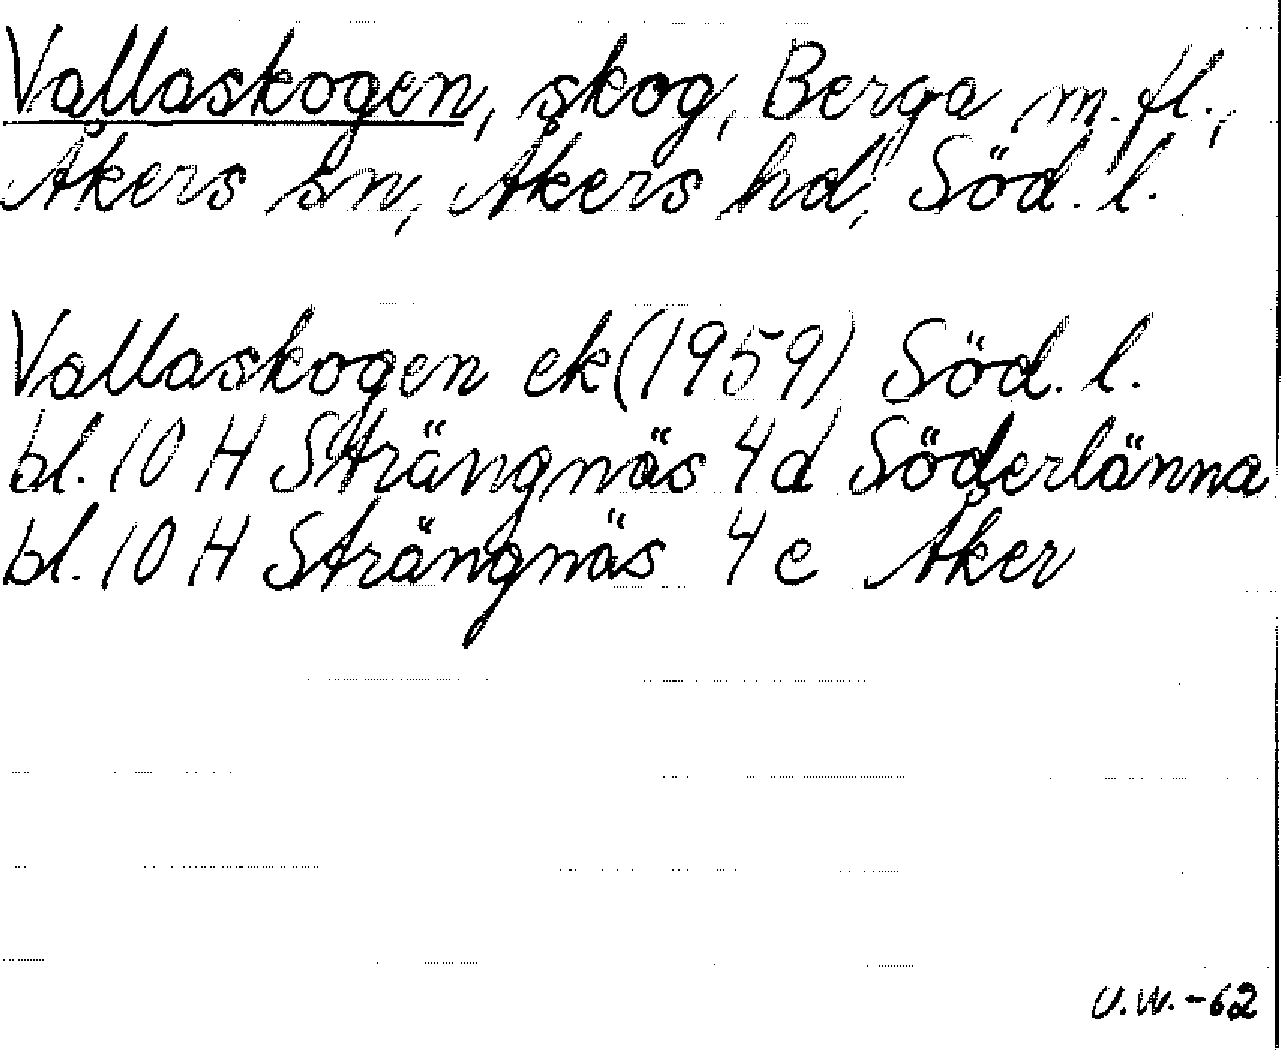 Vallaskogen, skog, Berga m.fl.,
Åkers sn, Åkers hd, Söd. l.
Vallaskogen ek (1959) Söd. l.
bl. 10 H Strängnäs 4d Söderlänna
bl. 10 H Strängnäs 4e Åker
U.W. -62